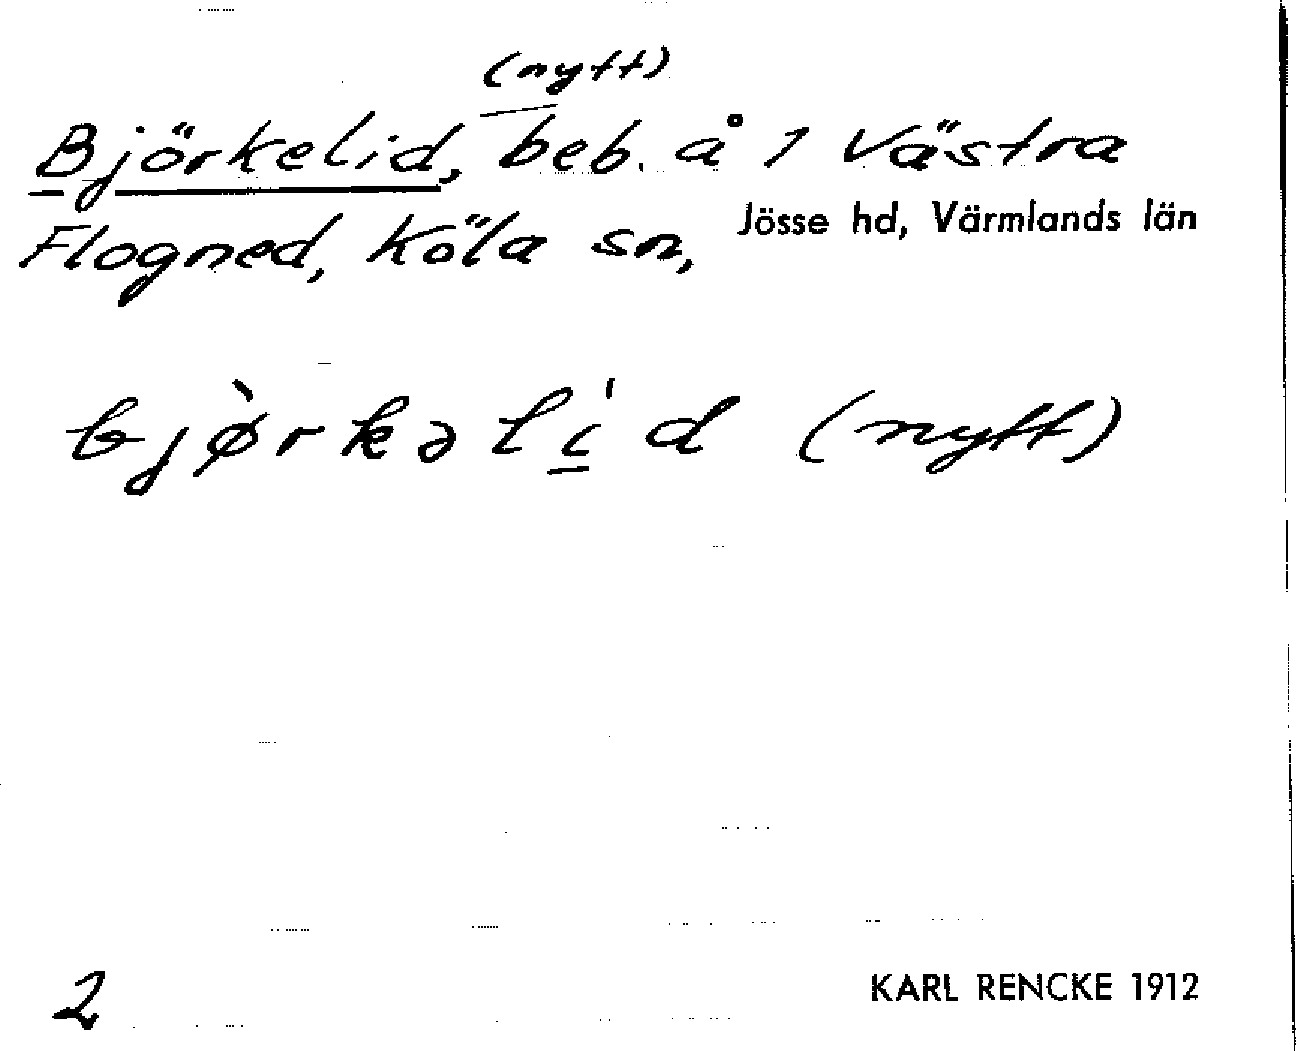 (nytt)
Björkelid, beb. å 1 Västra
Flogned, Köla sn, Jösse hd, Värmlands län
bjø̀rkəlí̱d (nytt)
2
KARL RENCKE 1912